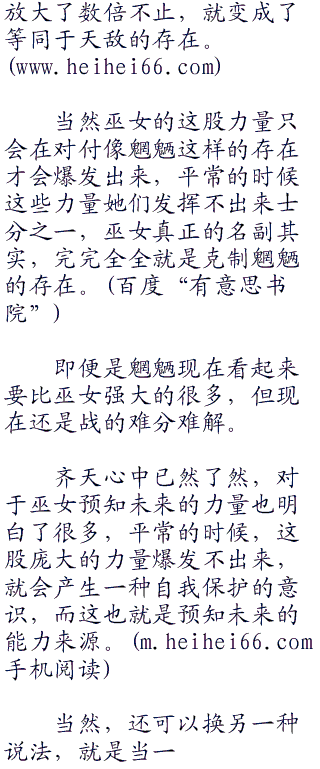 放大了数倍不止，就变成了
等同于天敌的存在。
(www.heihei66.com)
当然巫女的这股力量只
会在对付像魍魉这样的存在
才会爆发出来，平常的时候
这些力量她们发挥不出来士
分之一，巫女真正的名副其
实，完完全全就是克制魍魉
的存在。(百度“有意思书
院”)
即便是魍魉现在看起来
要比巫女强大的很多，但现
在还是战的难分难解。
齐天心中已然了然，对
于巫女预知未来的力量也明
白了很多，平常的时候，这
股庞大的力量爆发不出来，
就会产生一种自我保护的意
识，而这也就是预知未来的
能力来源。(m.heihei66.com
手机阅读)
当然，还可以换另一种
说法，就是当一